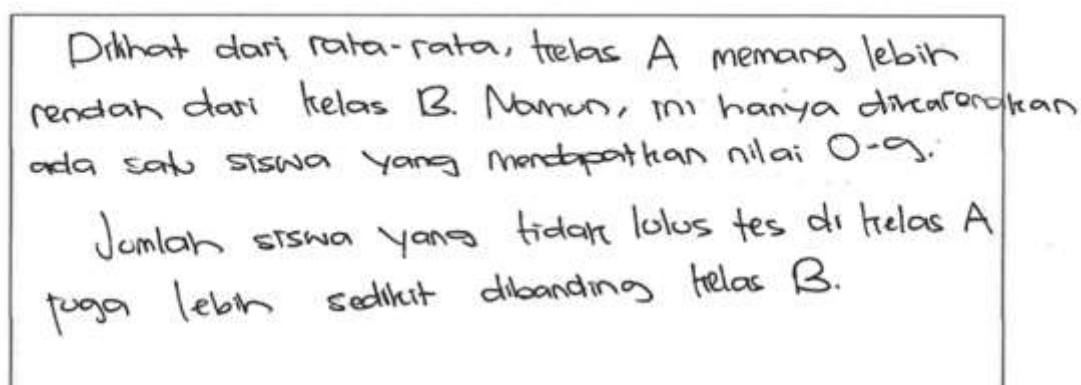 Dilihat dari rata-rata, kelas A memang lebih
rendah dari kelas B. Namun, ini hanya dikarenakan
ada satu siswa yang mendapatkan nilai 0-9.
Jumlah siswa yang tidak lulus tes di kelas A
juga lebih sedikit dibanding kelas B.